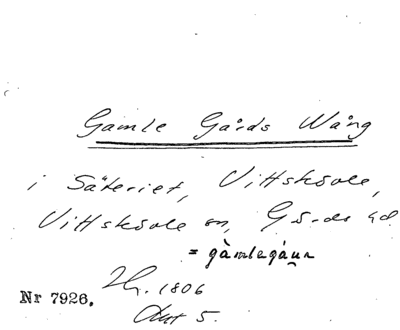 Gamle Gårds Wång
i Säteriet, Vittsköle,
Vittsköle sn, Gärds hd.
= gàmlegáụn
Nr 7926.
1806
Akt 5.